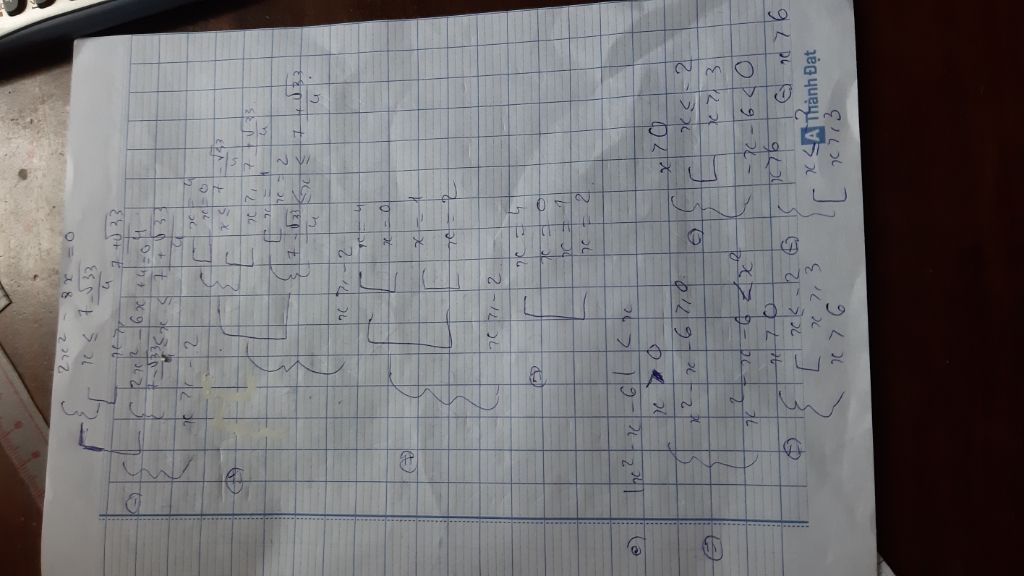 2x² - 8x = 0
x ≤ 7 - √33 / 4
x ≥ 7 + √33 / 4
⇔ 2x² - 6x + 4 = 0
7 - √33 / 4 ≤ x ≤ 7 + √33 / 4
x ≥ - 2
⇔ x = 4
x = 0
x ≤ 7 - √33 / 4
x ≥ 7 + √33 / 4
x = 1
x = 2
7 - √33 / 4 ≤ x ≤ 7 + √33 / 4
x ≥ - 2
⇔ x = 4
x = 0
x = 1
x = 2
x ≥ - 2
⇔ x = 4
x = 0
x = 1
x = 2
e) |x² - x - 6| < x
⇔ x > 0
x² - x - 6 ≥ 0
x² - x - 6 < x²
⇔ x > 0
x ≤ - 2
x ≥ 3
- x - 6 < 0
⇔ x > 0
x ≤ - 2
x ≥ 3
x > 6
⇔ x > 6
x ≤
x ≥ 3
⇔ x > 6
A Thành Đạt